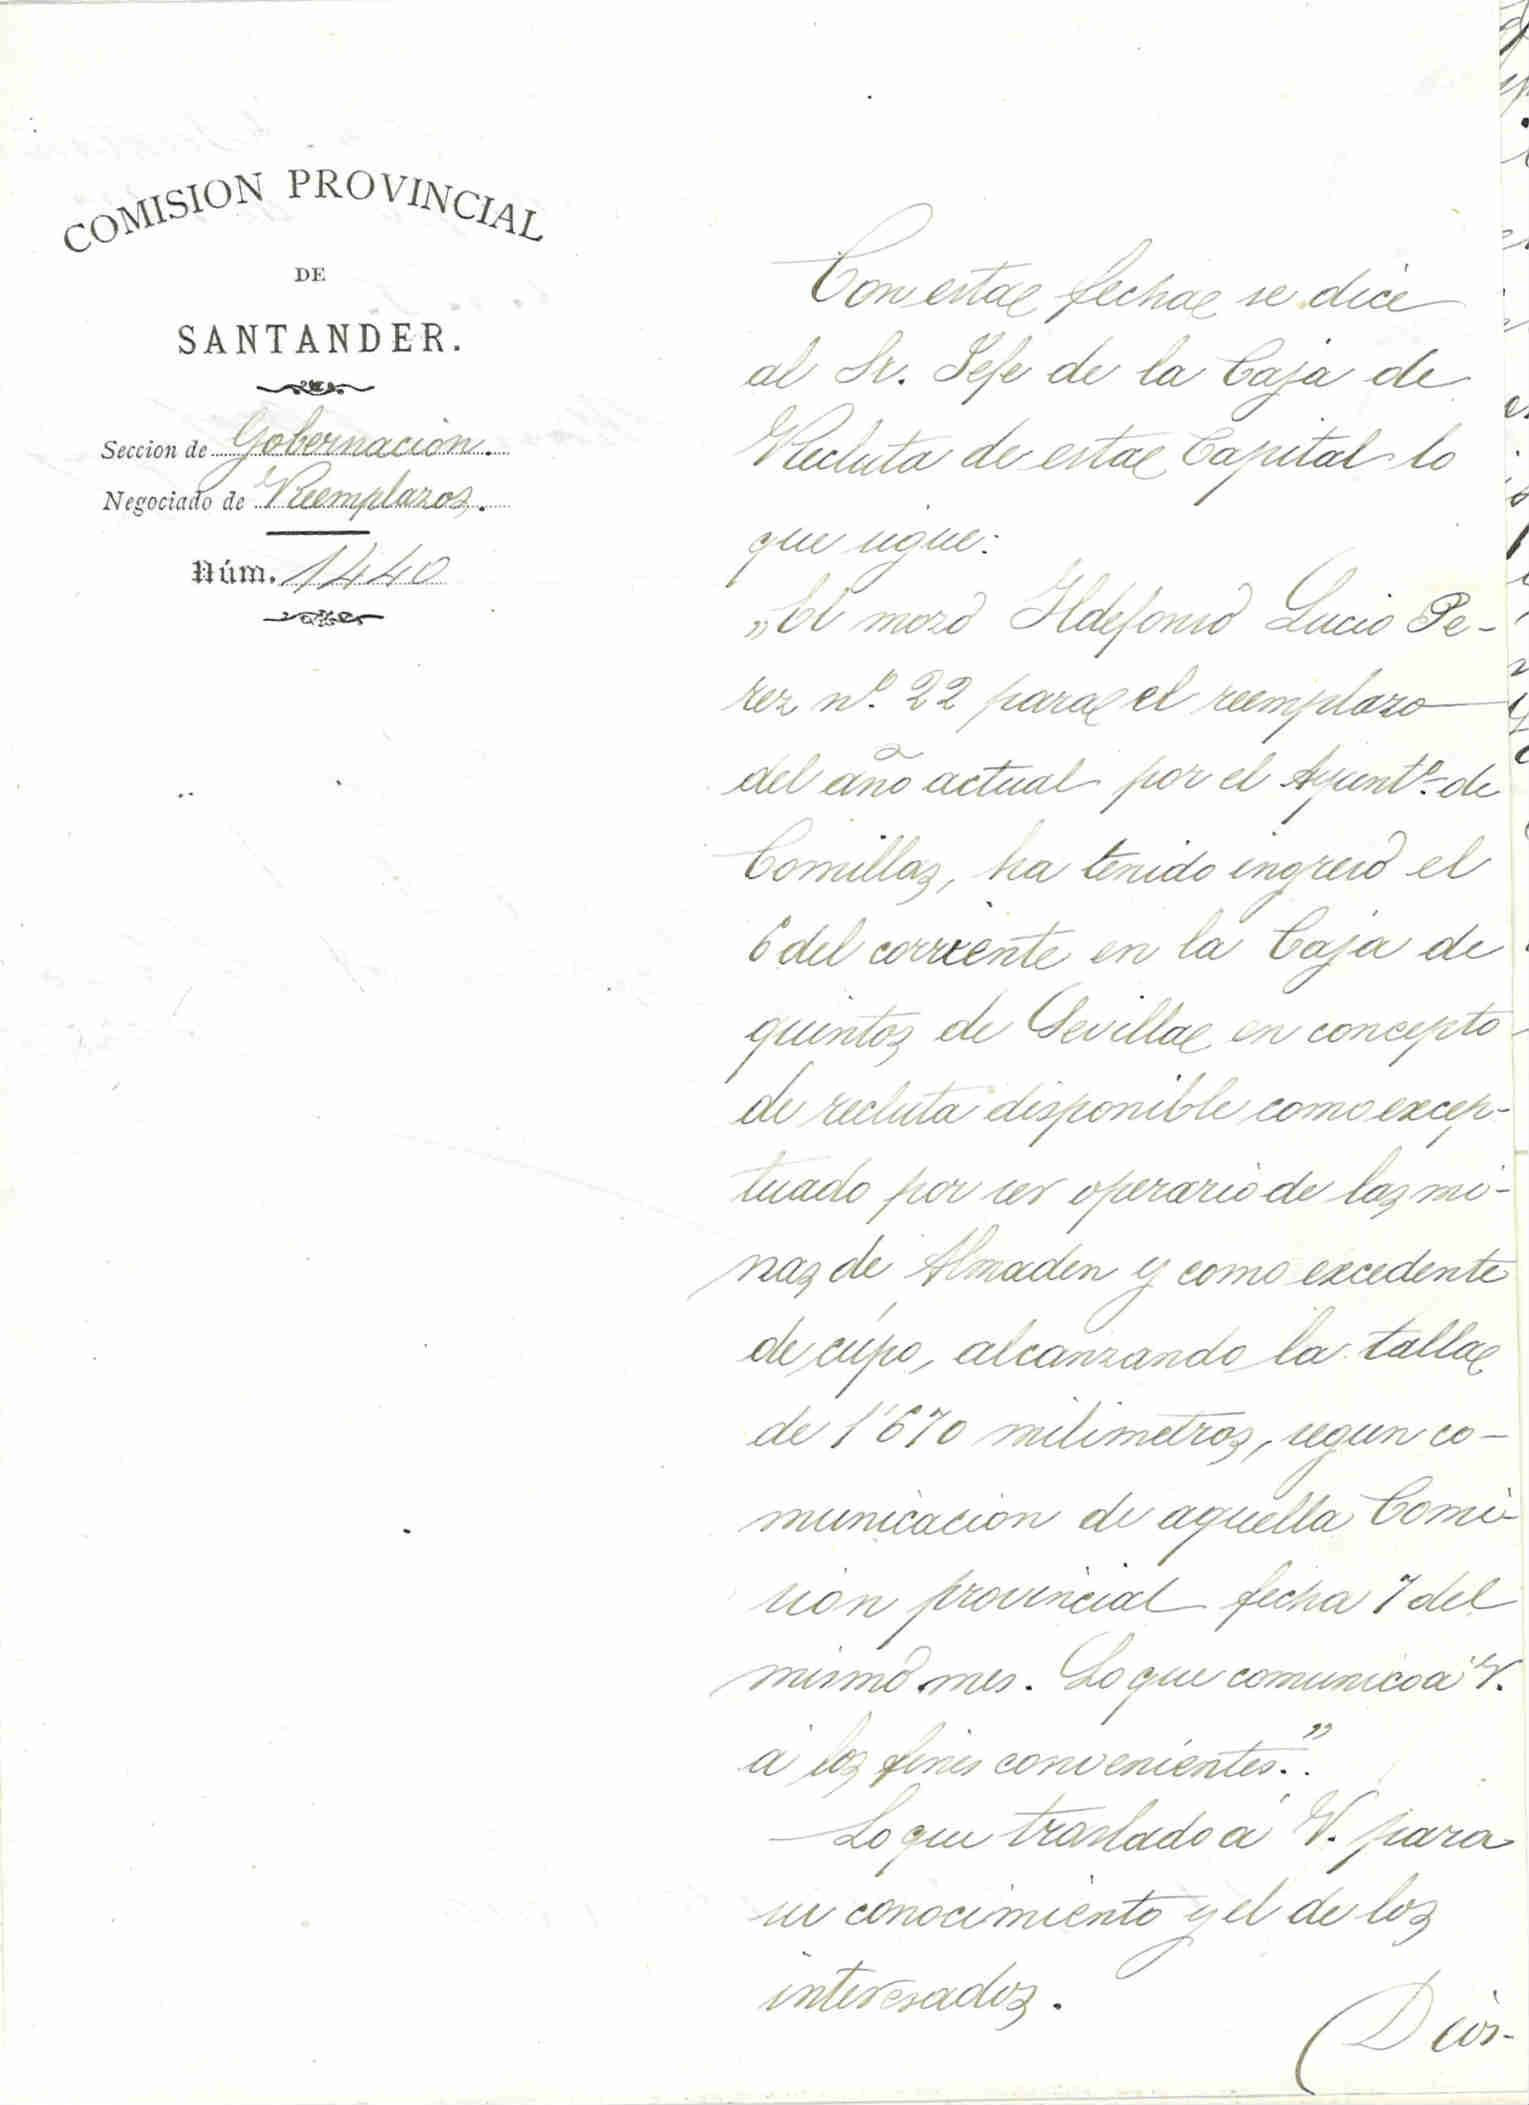 COMISION PROVINCIAL
DE
SANTANDER.
Seccion de Gobernación.
Negociado de Reemplazos.
Núm. 1440
Con esta fecha se dice
al Sr. Jefe de la Caja de
Recluta de esta Capital lo
que sigue:
"El mozo Ildefonso Lucio Pe-
rez nº. 22 para el reemplazo
del año actual por el Ayuntº. de
Comillas, ha tenido ingreso el
6 del corriente en la Caja de
quintos de Sevilla en concepto
de recluta disponible como excep-
tuado por ser operario de las mi-
nas de Almaden y como excedente
de cupo, alcanzando la talla
de 1'670 milimetros, segun co-
municacion de aquella Comi-
sion provincial fecha 7 del
mismo mes. Lo que comunico á V.
á los fines convenientes."
Lo que traslado á V. para
su conocimiento y el de los
interesados.
Dios-